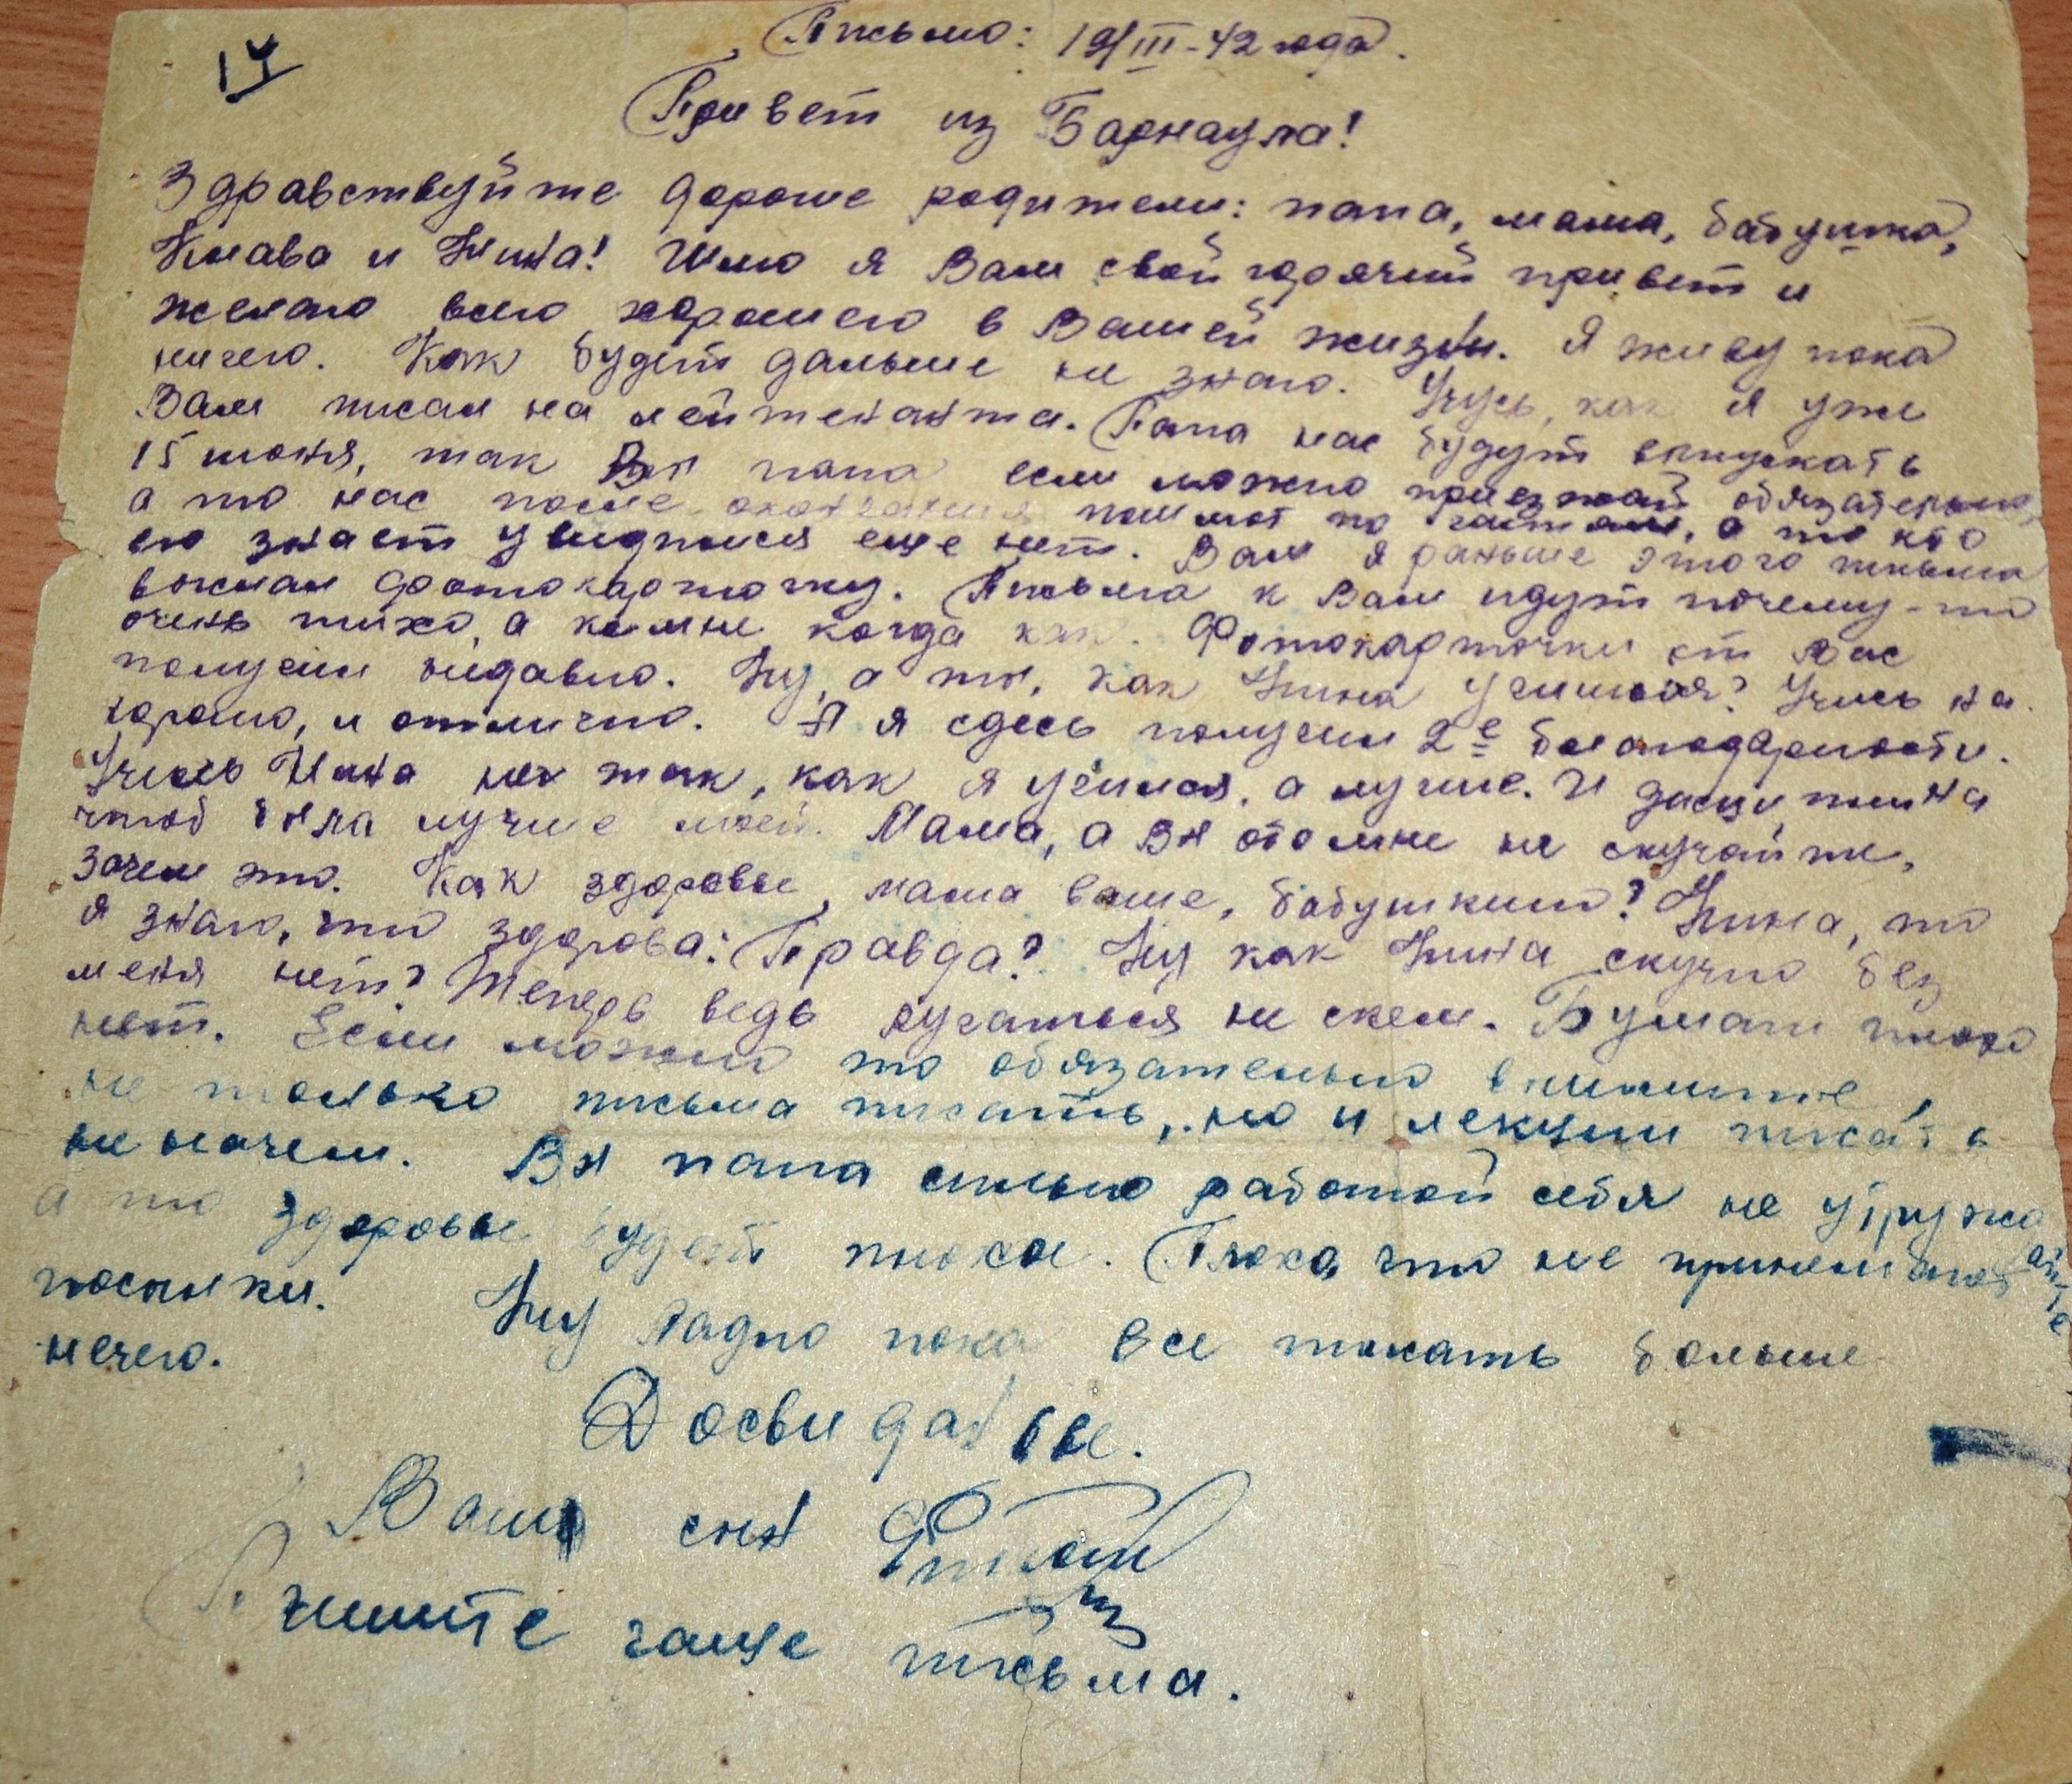 14
Письмо: 19/III-42 года.
Привет из Барнаула!
Здравствуйте дорогие родители: папа, мама, бабушка,
Клава и Нина! Шлю я Вам свой горячий привет и
желаю всего хорошего в Вашей жизни. Я живу пока
ничего. Как будет дальше не знаю. Учусь, как я уже
Вам писал на лейтенанта. Папа нас будут выпускать
15 июня, так Вы папа если можно приезжай обязательно,
а то нас после окончания пошлют по частям, а то кто
его знает увидимся еще нет. Вам я раньше этого письма
выслал фотокарточку. Письма к Вам идут почему-то
очень тихо, а ко мне когда как. Фотокарточки от Вас
получил недавно. Ну, а ты, как Нина учишься? Учись на
хорошо, и отлично. А я сдесь получил 2е благодарности.
Учись Нина не так, как я учился, а лучше. И дисциплина
чтоб была лучше моей. Мама, а Вы обо мне не скучайте,
зачем это. Как здоровье, мама ваше, бабушкино? Нина, то
я знаю, что здорова: Правда? Ну как Нина скучно без
меня нет? Теперь ведь ругаться не скем. Бумаги плохо
нет. Если можно то обязательно вышлите,
не только письма писать, но и лекции писать
не начем. Вы папа сильно работой себя не утружайте
а то здоровье будет плохое. Плохо, что не принимают
посылки. Ну ладно пока все писать больше
нечего.
Досвиданье.
Ваш сын
Пишите чаще письма.